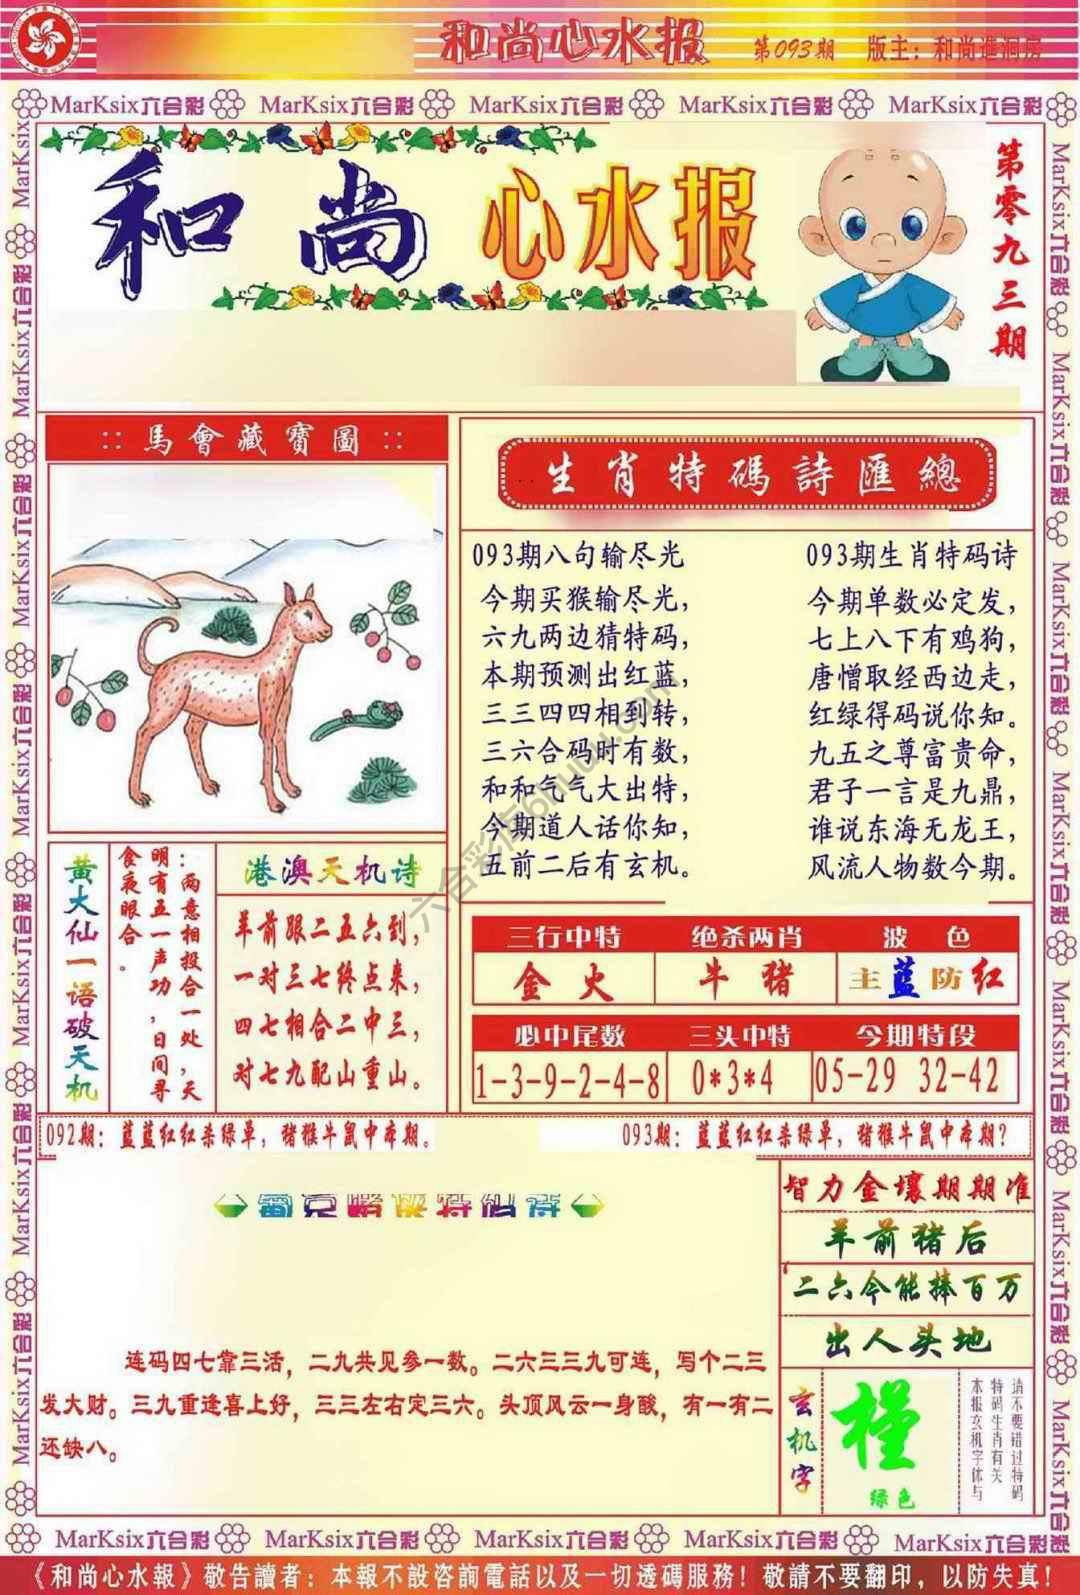 和尚心水报 第093期 版主：和尚進洞房
MarKsix六合彩 MarKsix六合彩 MarKsix六合彩 MarKsix六合彩 MarKsix六合彩
和尚心水报
第零九三期
:: 馬會藏寶圖 ::
生肖特碼詩匯總
093期八句输尽光
今期买猴输尽光，
六九两边猜特码，
本期预测出红蓝，
三三四四相到转，
三六合码时有数，
和和气气大出特，
今期道人话你知，
五前二后有玄机。
093期生肖特码诗
今期单数必定发，
七上八下有鸡狗，
唐憎取经西边走，
红绿得码说你知。
九五之尊富贵命，
君子一言是九鼎，
谁说东海无龙王，
风流人物数今期。
黄大仙一语破天机
：两意相投合一处，天
明有五一声功，日间寻
食夜眼合。
港澳天机诗
羊前跟二五六到，
一对三七终点来，
四七相合二中三，
对七九配山重山。
三行中特 绝杀两肖 波色
金火 牛猪 主蓝防红
必中尾数 三头中特 今期特段
1-3-9-2-4-8 0*3*4 05-29 32-42
092期：蓝蓝红红杀绿单，猪猴牛鼠中本期。
093期：蓝蓝红红杀绿单，猪猴牛鼠中本期？
连码四七靠三活，二九共见参一数。二六三三九可连，写个二三
发大财。三九重逢喜上好，三三左右定三六。头顶风云一身酸，有一有二
还缺八。
智力金壤期期准
羊前猪后
二六今能捧百万
出人头地
玄机字
槿
绿色
请不要错过特码
特码生肖有关
本报玄机字体与
六合彩库6huu.com
MarKsix六合彩 MarKsix六合彩 MarKsix六合彩 MarKsix六合彩 MarKsix六合彩
《和尚心水報》敬告讀者：本報不設咨詢電話以及一切透碼服務！敬請不要翻印，以防失真！